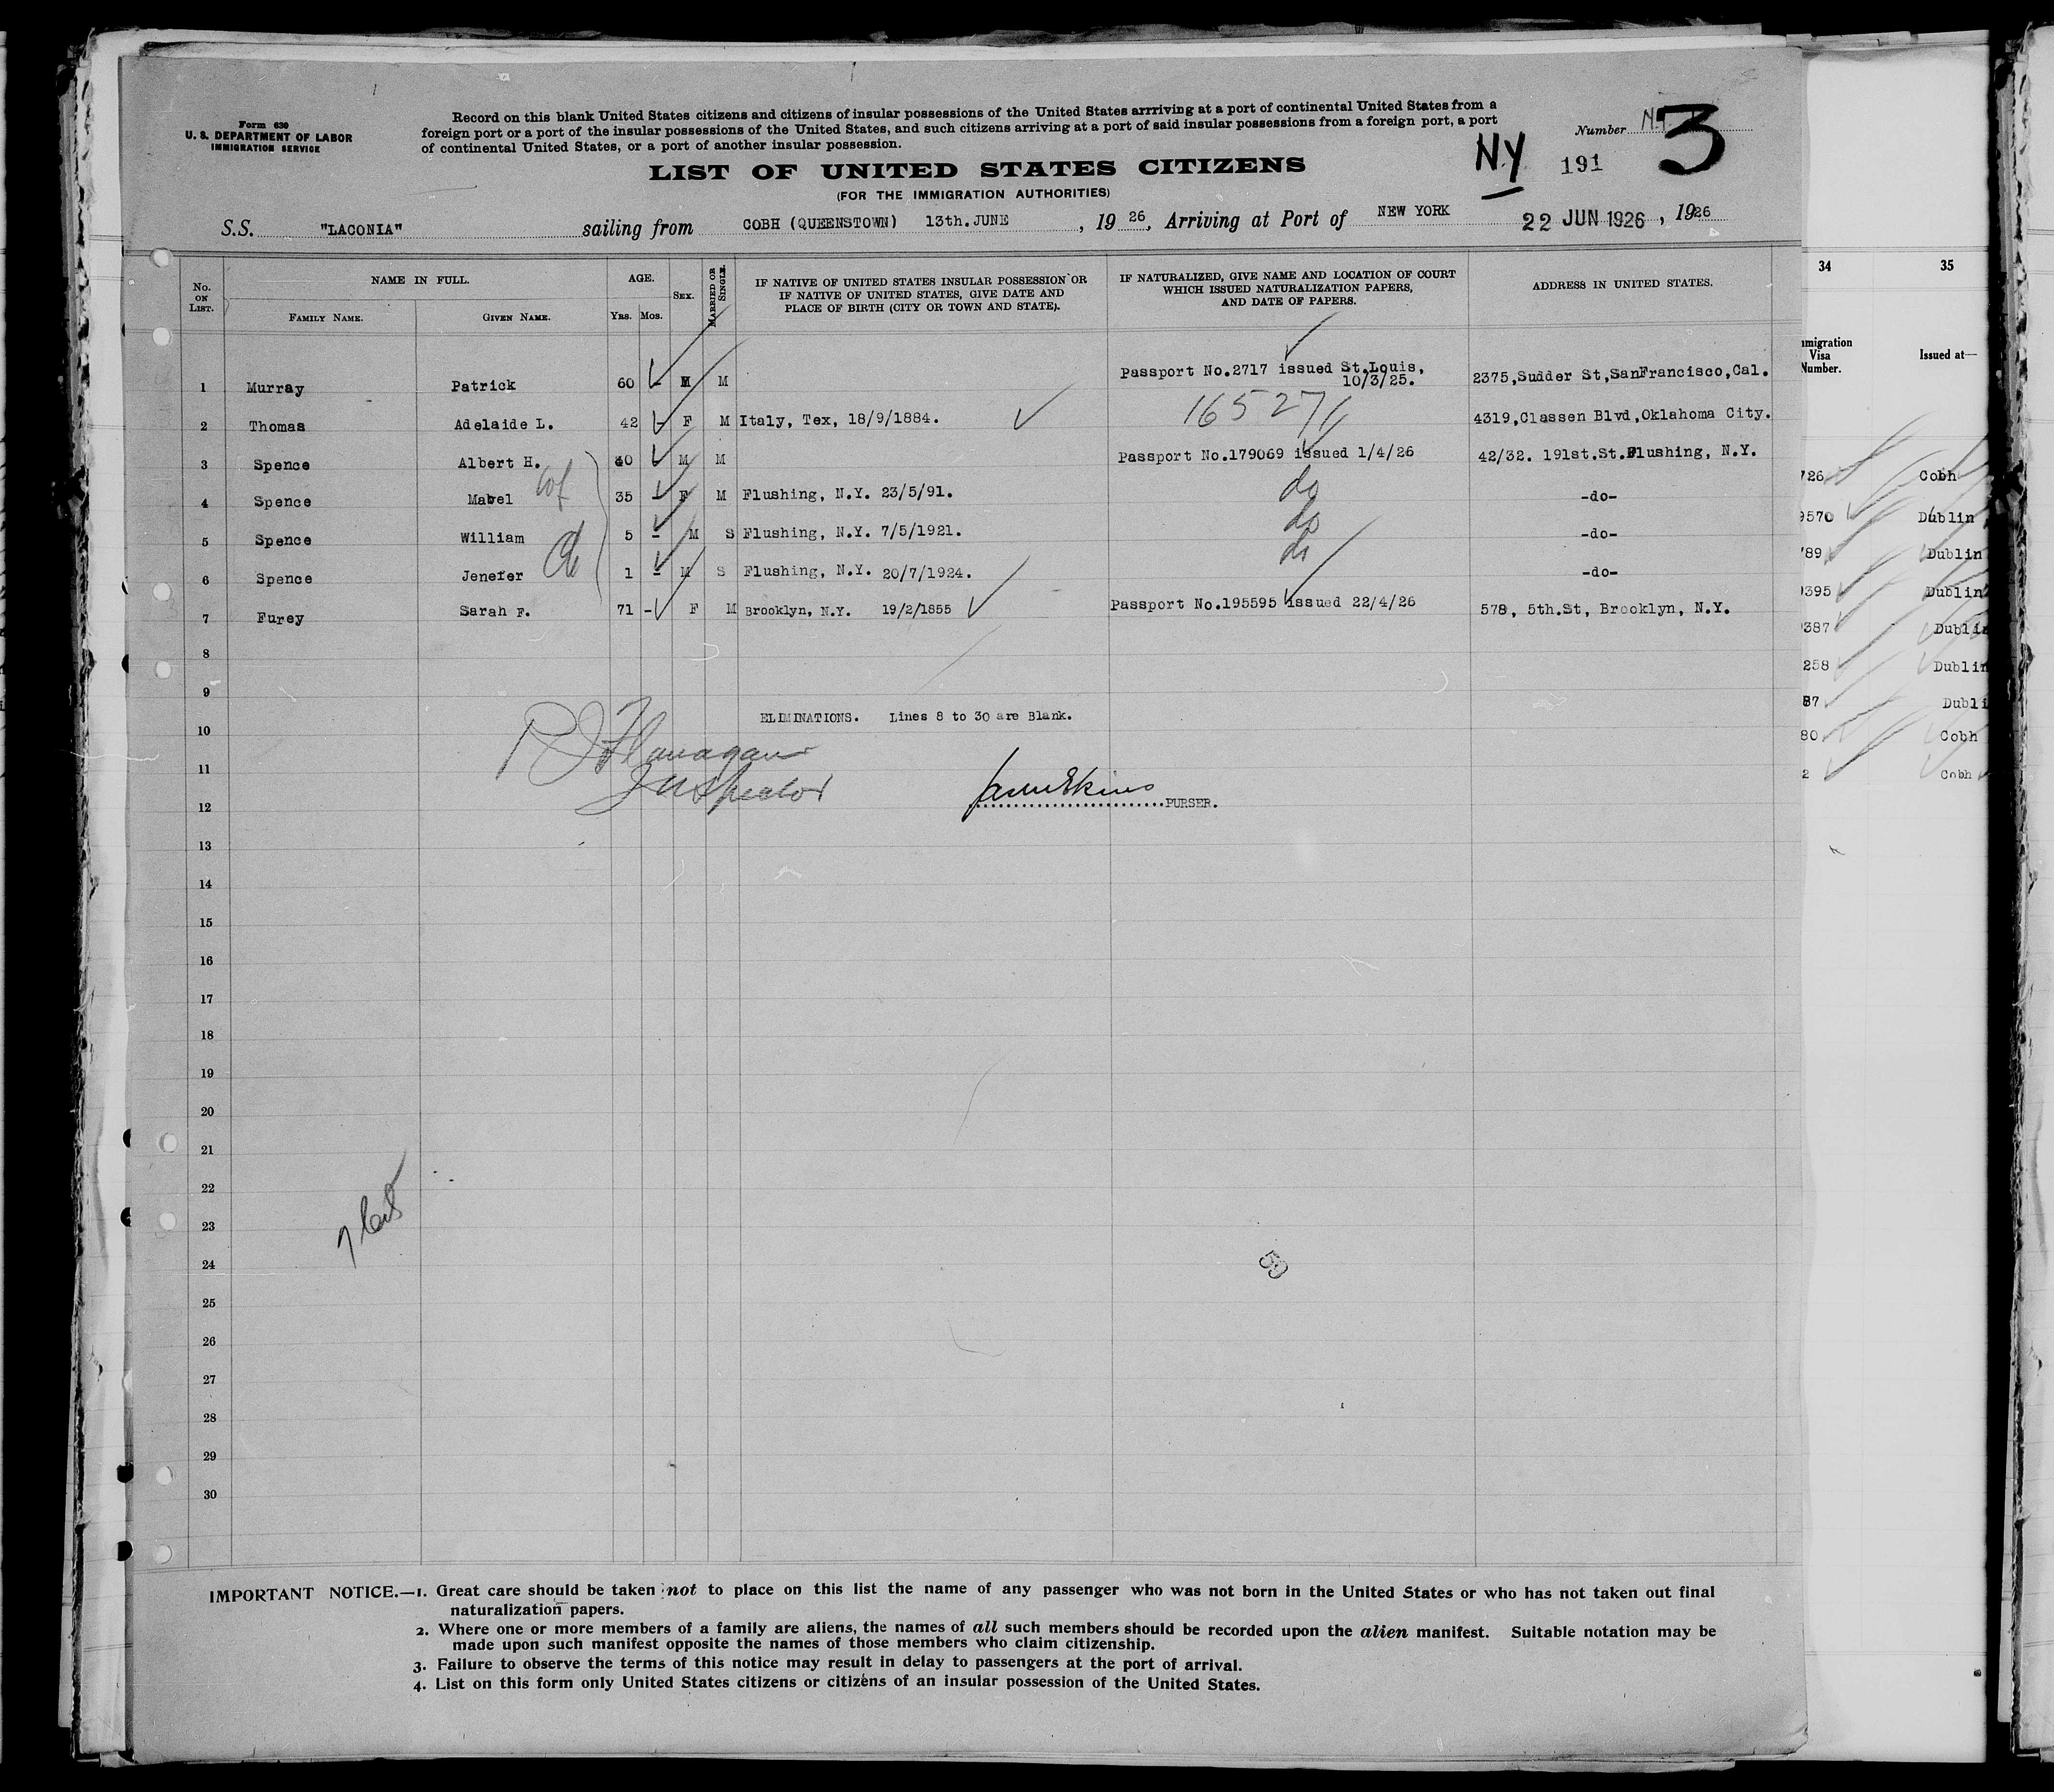 Form 630
U. S. DEPARTMENT OF LABOR
IMMIGRATION SERVICE
Record on this blank United States citizens and citizens of insular possessions of the United States arrriving at a port of continental United States from a
foreign port or a port of the insular possessions of the United States, and such citizens arriving at a port of said insular possessions from a foreign port, a port
of continental United States, or a port of another insular possession.
Number 3
NY 191
LIST OF UNITED STATES CITIZENS
(FOR THE IMMIGRATION AUTHORITIES)
S.S. "LACONIA" sailing from COBH (QUEENSTOWN) 13th.JUNE, 1926, Arriving at Port of NEW YORK 22 JUN 1926, 1926
No. ON LIST. NAME IN FULL. FAMILY NAME. GIVEN NAME. AGE. YRS. MOS. SEX. MARRIED OR SINGLE. IF NATIVE OF UNITED STATES INSULAR POSSESSION OR IF NATIVE OF UNITED STATES, GIVE DATE AND PLACE OF BIRTH (CITY OR TOWN AND STATE). IF NATURALIZED, GIVE NAME AND LOCATION OF COURT WHICH ISSUED NATURALIZATION PAPERS, AND DATE OF PAPERS. ADDRESS IN UNITED STATES.
1 Murray Patrick 60 - M M Passport No.2717 issued St.Louis, 10/3/25. 2375,Sudder St,SanFrancisco,Cal.
2 Thomas Adelaide L. 42 - F M Italy, Tex, 18/9/1884. 165271 4319,Classen Blvd,Oklahoma City.
3 Spence Albert H. 40 M M Passport No.179069 issued 1/4/26 42/32. 191st.St.Flushing, N.Y.
4 Spence Mabel wf 35 - F M Flushing, N.Y. 23/5/91. do -do-
5 Spence William 5 - M S Flushing, N.Y. 7/5/1921. do -do-
6 Spence Jenefer ch 1 - M S Flushing, N.Y. 20/7/1924. do -do-
7 Furey Sarah F. 71 - F M Brooklyn, N.Y. 19/2/1855 Passport No.195595 issued 22/4/26 578, 5th.St, Brooklyn, N.Y.
8
9
10 ELIMINATIONS. Lines 8 to 30 are Blank.
P J Flanagan
11
Inspector
12 PURSER.
13
14
15
16
17
18
19
20
21
22
23
24
59
25
26
27
28
29
30
IMPORTANT NOTICE.—1. Great care should be taken not to place on this list the name of any passenger who was not born in the United States or who has not taken out final
naturalization papers.
2. Where one or more members of a family are aliens, the names of all such members should be recorded upon the alien manifest. Suitable notation may be
made upon such manifest opposite the names of those members who claim citizenship.
3. Failure to observe the terms of this notice may result in delay to passengers at the port of arrival.
4. List on this form only United States citizens or citizens of an insular possession of the United States.
34 35
Visa Number. Issued at—
726 Cobh
9570 Dublin
789 Dublin
395 Dublin
387 Dublin
258 Dublin
87 Dubli
80 Cobh
2 Cobh